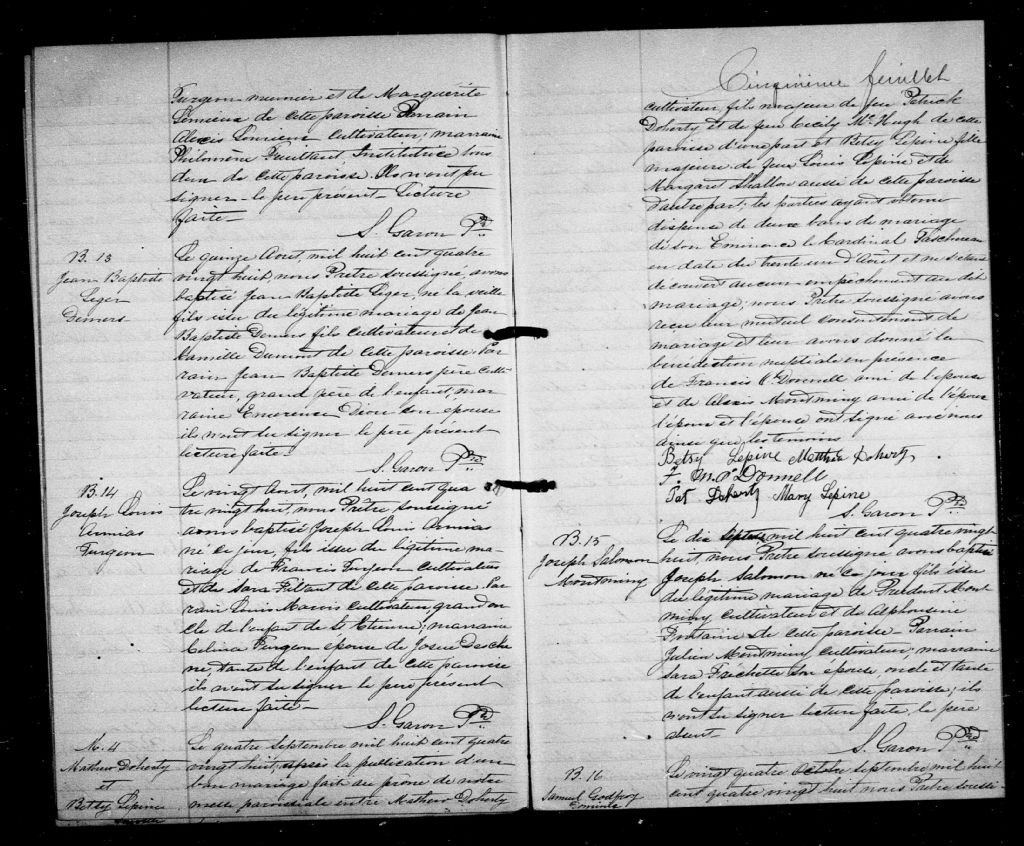 Turgeon meunier et de Marguérite
Lemieux de cette paroisse Parrain
Alexis Lemieux Cultivateur; marraine
Philomène Institutrice tous
deux de cette paroisse. Ils n'ont pu
signer - le père présent - Lecture
faite -
S. Garon Ptre
B. 13
Jean Baptiste
Leger
Demers
Le quinze Aout, mil huit cent quatre
vingt huit, nous Prêtre soussigné avons
baptisé Jean Baptiste Leger, né la veille
fils issu du légitime mariage de Jean
Baptiste Demers fils Cultivateur et de
Camille Dumont de cette paroisse. Par-
rain Jean Baptiste Demers père Culti-
vateur, grand père de l'enfant, mar-
raine Emerence Dion son epouse
ils n'ont su signer le père présent
lecture faite -
S. Garon Ptre
B. 14
Joseph Louis
Annias
Turgeon
Le vingt Aout, mil huit cent qua
tre vingt huit, nous Prêtre soussigné
avons baptisé Joseph Louis Annias
né ce jour, fils issu du légitime ma-
riage de Francis Turgeon Cultivateur
et de Sara Filteau de cette paroisse. Par
rain Louis Marois Cultivateur, grand on
cle de l'enfant de St Etienne; marraine
Celina Turgeon épouse de Josué Desche
ne, tante de l'enfant de cette paroisse
ils n'ont su signer le père présent
lecture faite -
S. Garon Ptre
M. 4
Mathew Doherty
et
Betsy Lepine
Le quatre Septembre mil huit cent quatre
vingt huit, après la publication d'un
ban mariage fait au prone de notre
messe paroissiale entre Mathew Doherty
Cinquième feuillet
cultivateur, fils majeur de feu Patrick
Doherty et de feu Cicily Mc Hugh de cette
paroisse d'une part et Betsy Lepine fille
majeure de feu Louis Lepine et de
Margaret Shallow aussi de cette paroisse
d'autre part; les parties ayant obtenu
dispense de deux bans de mariage
de Son Eminence le Cardinal Taschereau
en date du trente un d'Août et ne s'étant
découvert aucun empêchement au dit
mariage, nous Prêtre soussigné avons
reçu leur mutuel consentement de
mariage et leur avons donné la
bénédiction nuptiale en présence
de Francis O'Donnell ami de l'épouse
et de Alexis Montminy ami de l'époux
l'époux et l'épouse ont signé avec nous
ainsi que les temoins
Betsy Lepine Matthew Doherty
F. M. O'Donnell
Pat Doherty Mary Lepine
S. Garon Ptre
B. 15
Joseph Salomon
Montminy
Le dix Septembre mil huit cent quatre vingt
huit, nous Prêtre soussigné avons baptisé
Joseph Salomon né ce jour fils issu
du légitime mariage de Prudent Mont
miny, cultivateur et de Alphonsine
Fontaine de cette paroisse Parrain
Julien Montminy, cultivateur; marraine
Sara Fréchette son épouse, oncle et tante
de l'enfant aussi de cette paroisse; ils
n'ont su signer lecture faite, le père
absent.
S. Garon Ptre
B. 16
Samuel Godfroy
Le vingt quatre octobre septembre mil huit
cent quatre vingt huit nous Prêtre soussi-